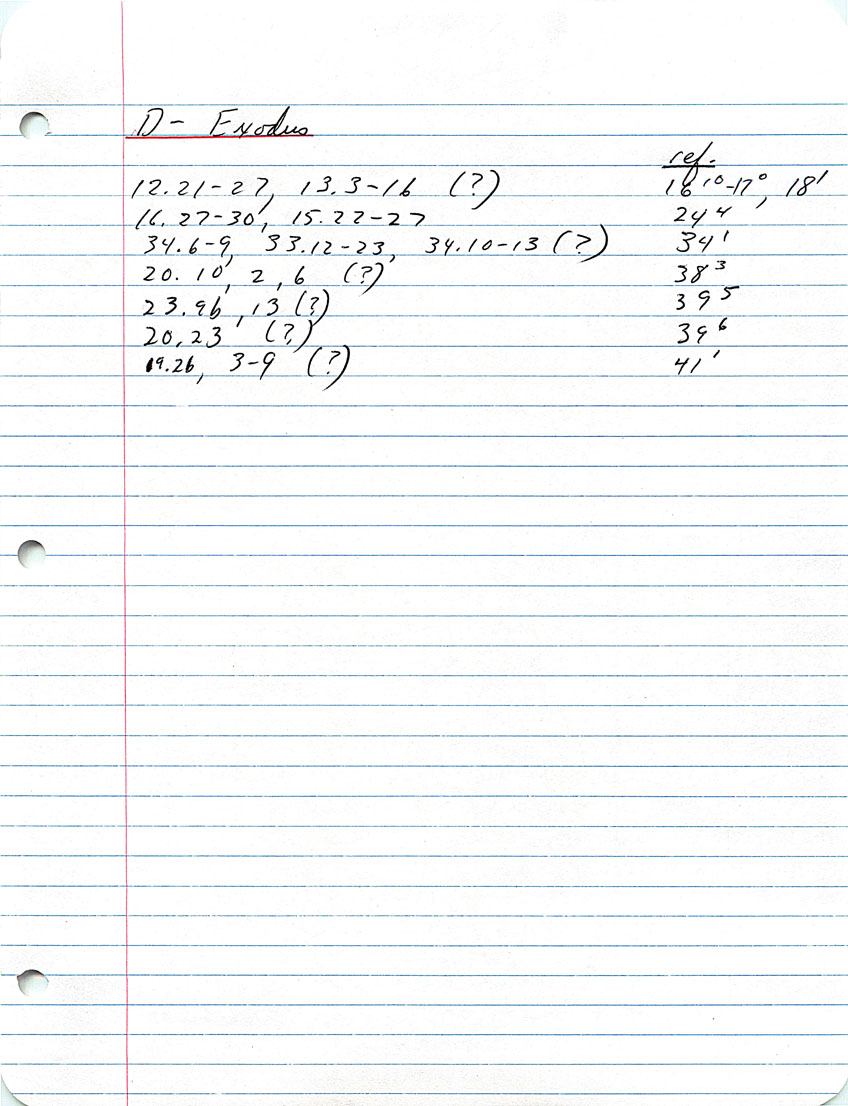 D - Exodus
ref.
12.21-27, 13.3-16 (?) 16¹⁰-17⁰, 18¹
16.27-30, 15.22-27 24⁴
34.6-9, 33.12-23, 34.10-13 (?) 34¹
20.10, 2, 6 (?) 38³
23.9b, 13 (?) 39⁵
20.23 (?) 39⁶
19.2b, 3-9 (?) 41¹